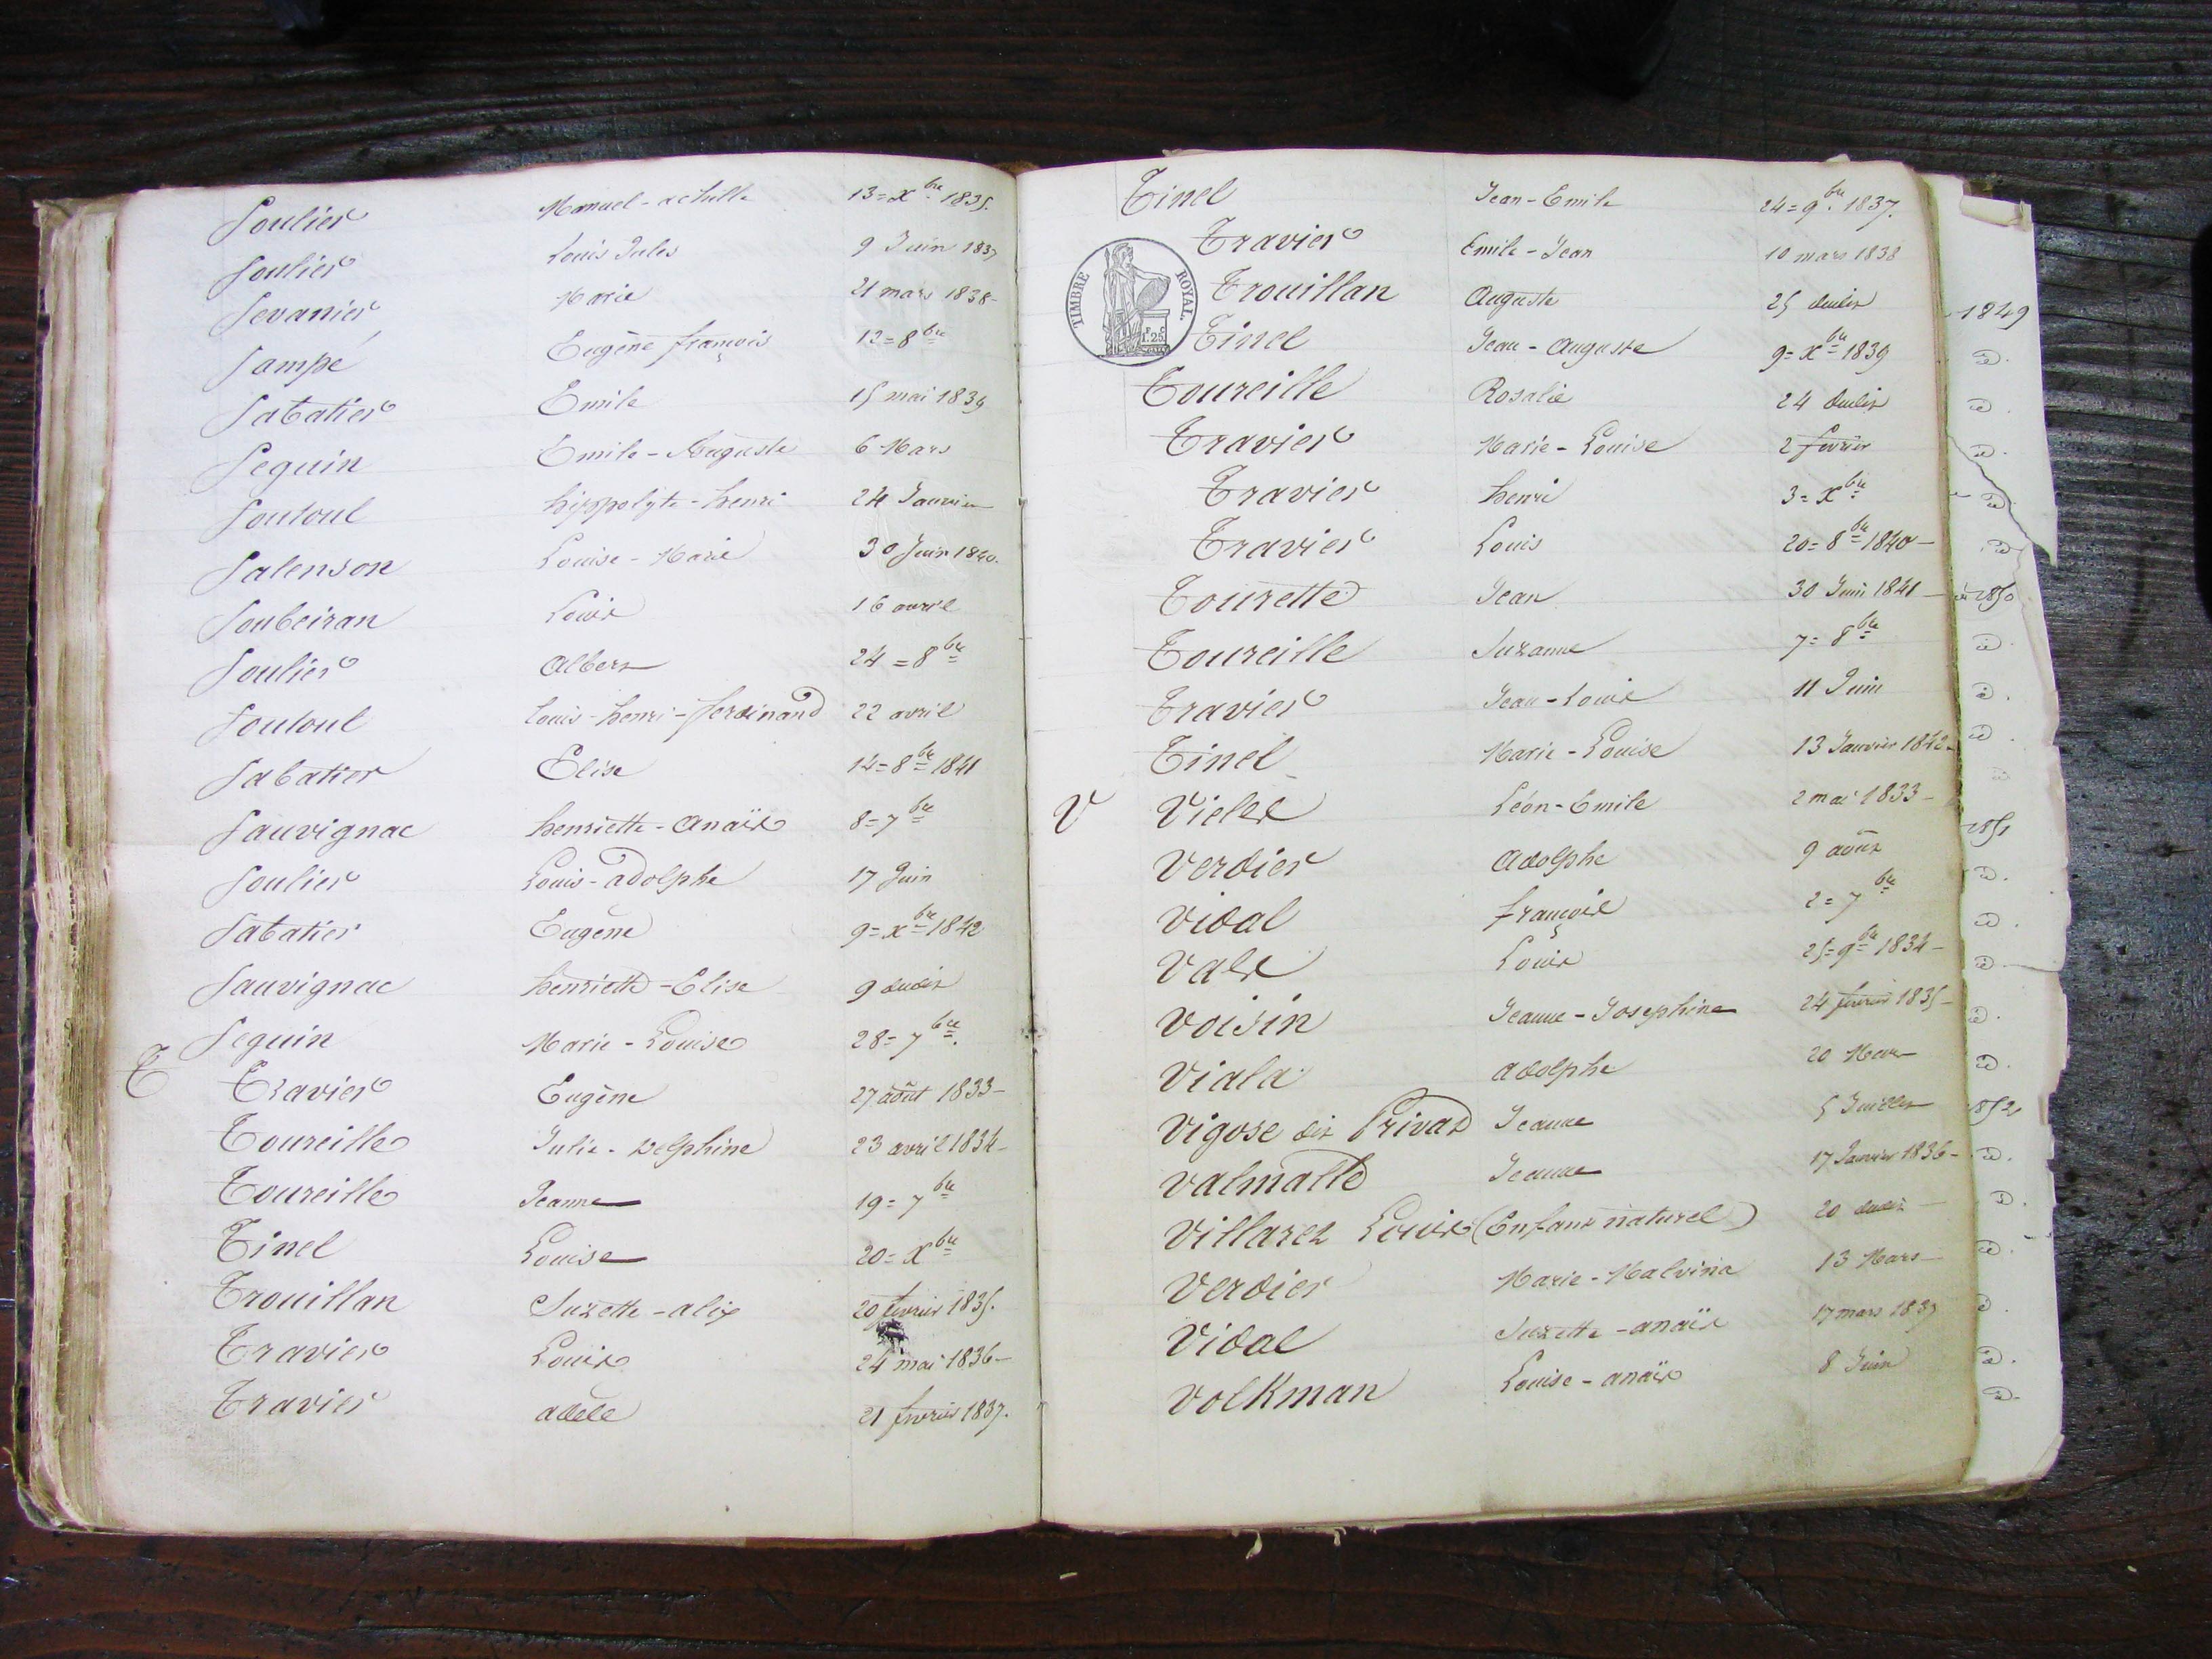 Soulier Manuel - achille 13 = Xbre 1835.
Soulier Louis Jules 9 Juin 1837
Sevanier Marie 21 mars 1838 -
Sampé Eugène françois 12 = 8bre
Sabatier Emile 15 mai 1839
Seguin Emile - Auguste 6 Mars
Soutoul hippolyte - henri 24 Janvier
Salenson Louise - Marie 30 Juin 1840.
Soubeiran Louis 16 avril
Soulier Albert 24 = 8bre
Soutoul Louis - henri - ferdinand 22 avril
Sabatier Elise 14 = 8bre 1841
Sauvignac henriette - Anaïs 8 = 7bre
Soulier Louis - adolphe 17 Juin
Sabatier Eugène 9 = Xbre 1842
Sauvignac henriette - Elise 9 dudit
Seguin Marie - Louise 28 = 7bre.
T Travier Eugène 27 août 1833 -
Toureille Julie - Delphine 23 avril 1834 -
Toureille Jeanne 19 = 7bre
Tinel Louise 20 = Xbre
Trouillan Suzette - alix 20 fevrier 1835.
Travier Louis 24 mai 1836 -
Travier adèle 21 fevrier 1837.
Tinel Jean - Emile 24 = 9bre 1837.
Travier Emile - Jean 10 mars 1838
TIMBRE ROYAL.
1f. 25c
Trouillan Auguste 25 dudit
Tinel Jean - Auguste 9 = Xbre 1839
Toureille Rosalie 24 dudit
Travier Marie - Louise 2 fevrier
Travier henri 3 = Xbre
Travier Louis 20 = 8bre 1840 -
Tourette Jean 30 Juin 1841 -
Toureille Suzanne 7 = 8bre
Travier Jean - Louis 11 Juin
Tinel Marie - Louise 13 Janvier 1842 -
V Vielet Léon - Emile 2 mai 1833 -
Verdier Adolphe 9 août
Vidal françois 2 = 7bre
Vals Louis 25 = 9bre 1834 -
Voisin Jeanne - Josephine 24 fevrier 1835 -
Viala adolphe 20 Mars
Vigose dit Privat Jeanne 5 Juillet
Valmalle Jeanne 17 Janvier 1836 -
Villaret Louis (Enfant naturel) 20 dudit -
Verdier Marie - Malvina 13 Mars -
Vidal Suzette - anaïs 17 mars 1839
Volkman Louise - anaïs 8 Juin
1849
1850
1851
1852